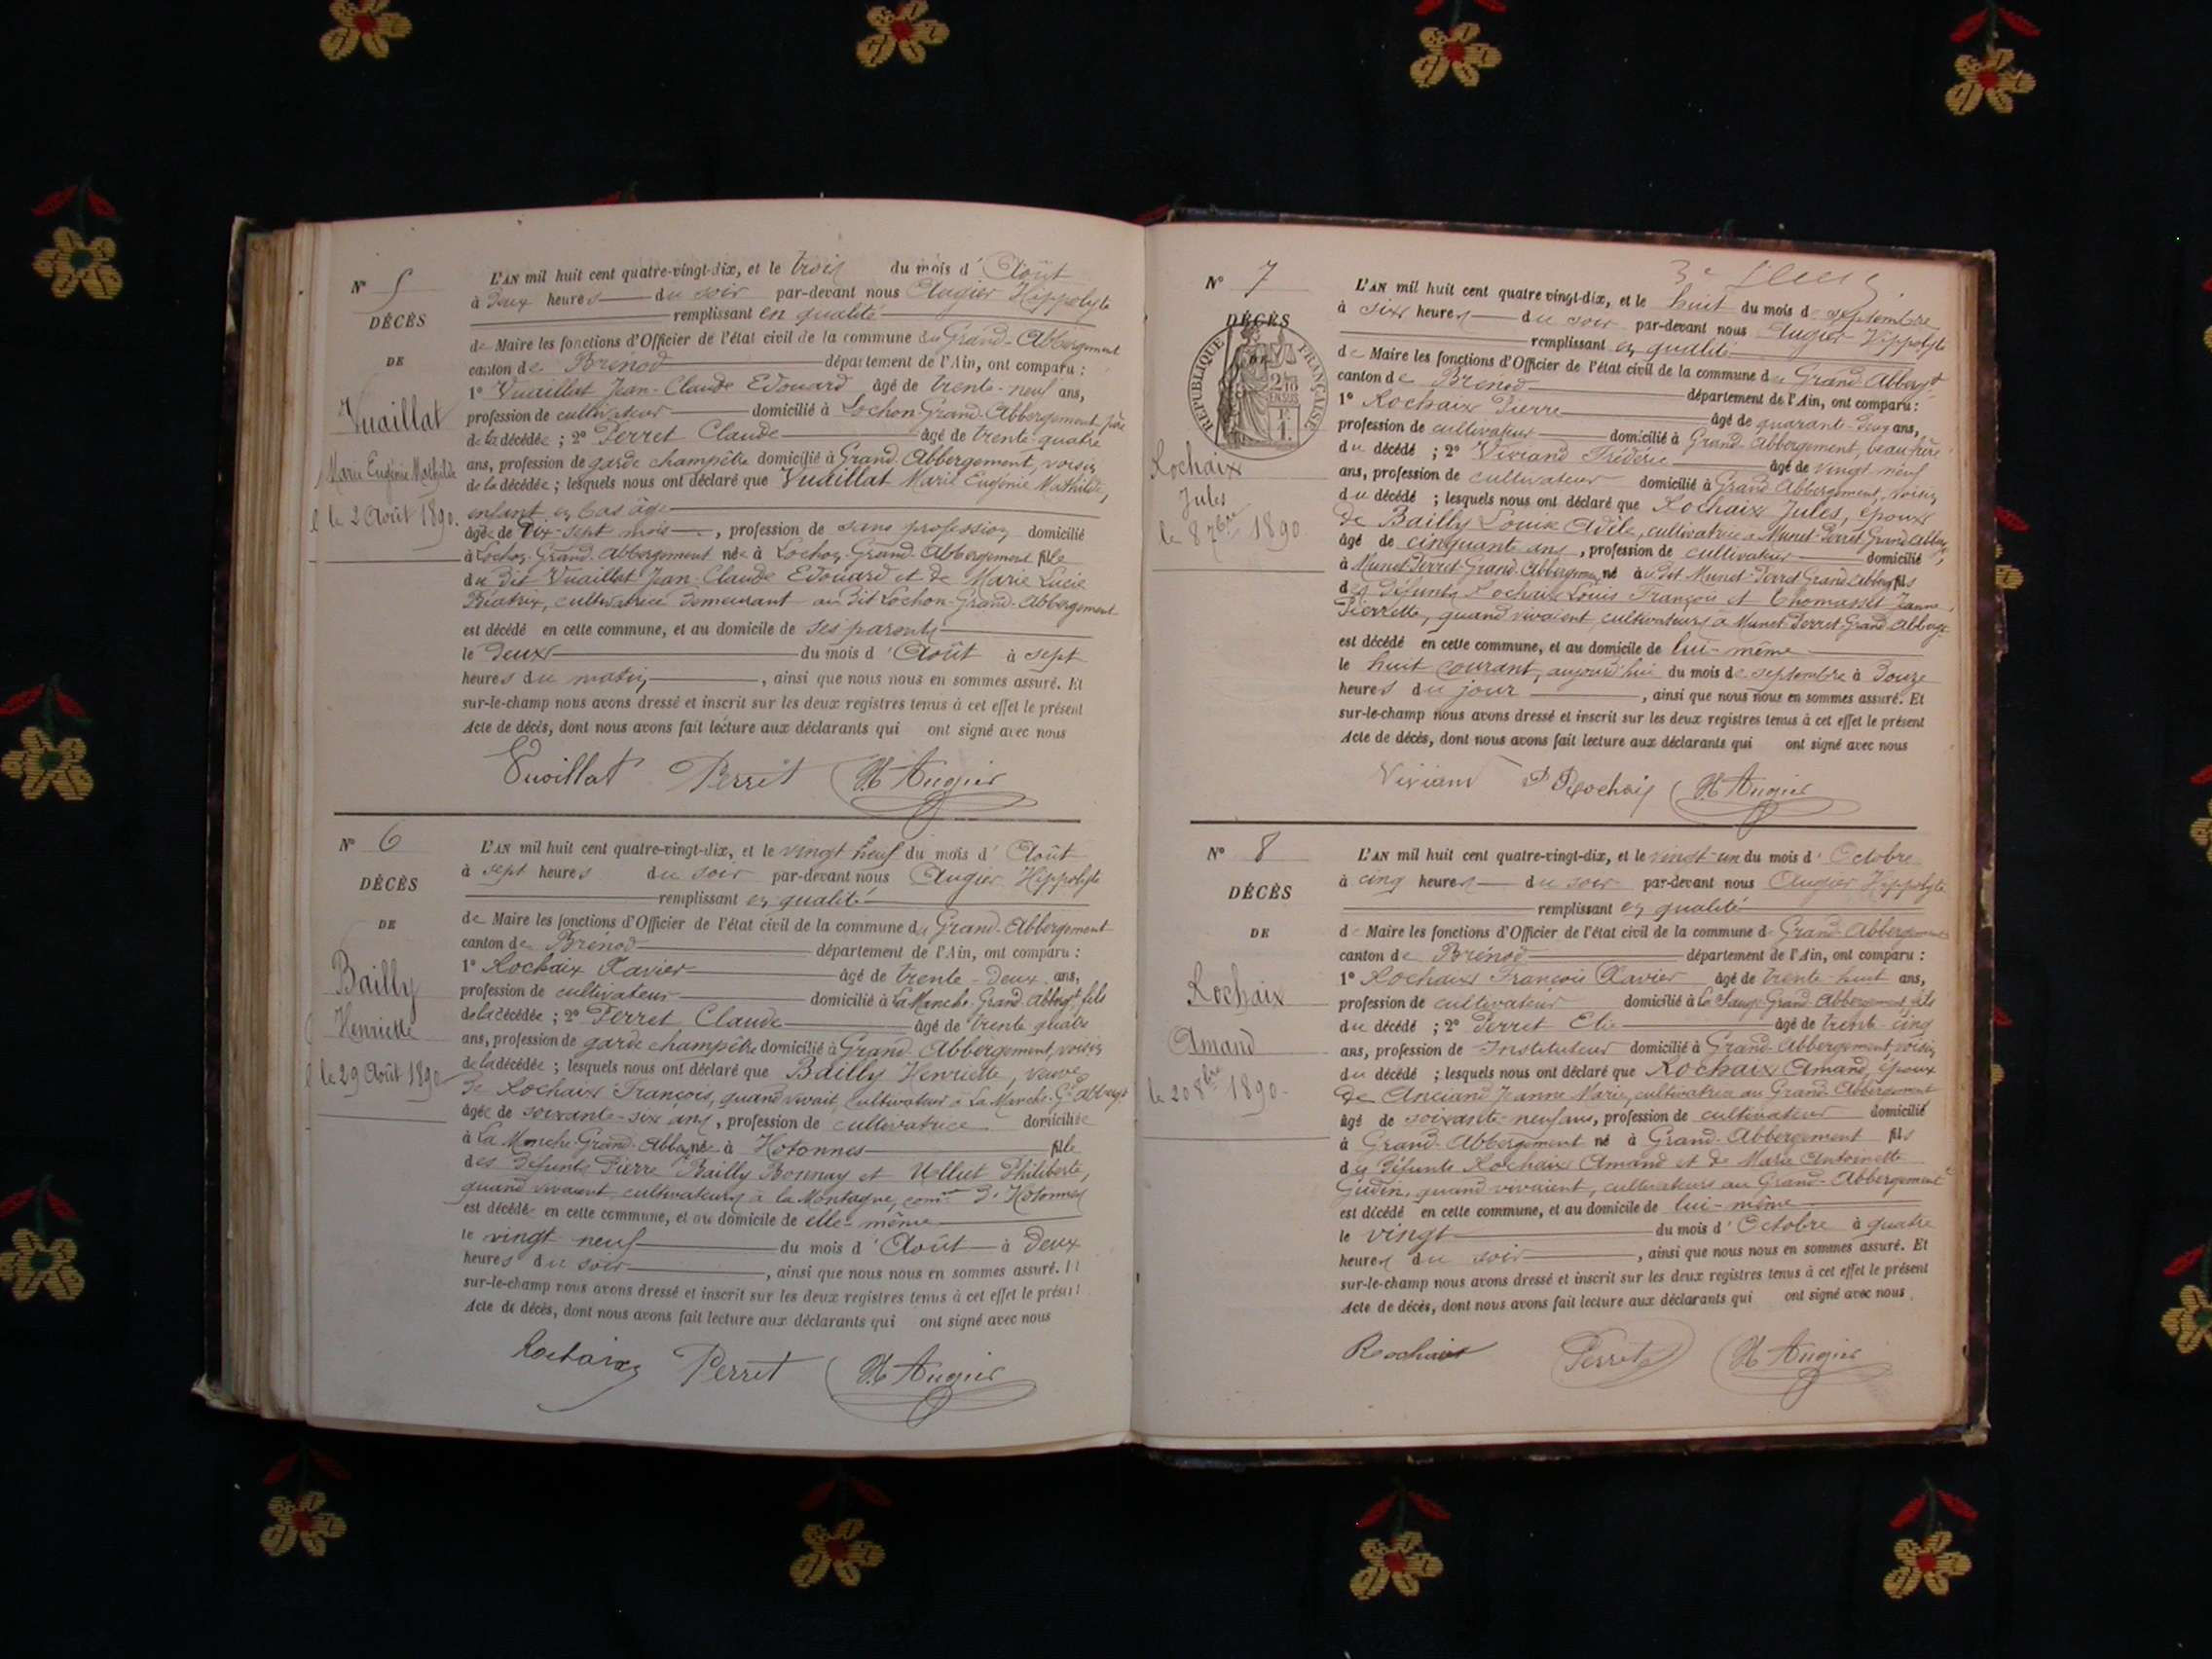 N° 5
DÉCÈS
DE
Vuaillat
Marie Eugénie Mathilde
le 2 Août 1890.
L'AN mil huit cent quatre-vingt-dix, et le trois du mois d'Août
à deux heures du soir par-devant nous Augier Hippolyte
remplissant en qualité
de Maire les fonctions d'Officier de l'état civil de la commune du Grand-Abbergement
canton de Brénod département de l'Ain, ont comparu :
1° Vuaillat Jean-Claude Edouard âgé de trente-neuf ans,
profession de cultivateur domicilié à Lochon-Grand-Abbergement, père
de la décédée ; 2° Perret Claude âgé de trente-quatre
ans, profession de garde champêtre domicilié à Grand-Abbergement, voisin
de la décédée ; lesquels nous ont déclaré que Vuaillat Marie Eugénie Mathilde,
enfant en bas âge
âgée de Dix-sept mois, profession de sans profession domicilié
à Lochon-Grand-Abbergement née à Lochon-Grand-Abbergement fille
du dit Vuaillat Jean-Claude Edouard et de Marie Lucie
Béatrix, cultivatrice demeurant au dit Lochon-Grand-Abbergement
est décédé en cette commune, et au domicile de ses parents
le deux du mois d'Août à sept
heures du matin, ainsi que nous nous en sommes assuré. Et
sur-le-champ nous avons dressé et inscrit sur les deux registres tenus à cet effet le présent
Acte de décès, dont nous avons fait lecture aux déclarants qui ont signé avec nous
Vuoillat Perret H Augier
N° 6
DÉCÈS
DE
Bailly
Henriette
le 29 Août 1890
L'AN mil huit cent quatre-vingt-dix, et le vingt neuf du mois d'Août
à sept heures du soir par-devant nous Augier Hippolyte
remplissant en qualité
de Maire les fonctions d'Officier de l'état civil de la commune du Grand-Abbergement
canton de Brénod département de l'Ain, ont comparu :
1° Rochaix Xavier âgé de trente-deux ans,
profession de cultivateur domicilié à La Manche-Grand-Abbergt, fils
de la décédée ; 2° Perret Claude âgé de trente quatre
ans, profession de garde champêtre domicilié à Grand-Abbergement, voisin
de la décédée ; lesquels nous ont déclaré que Bailly Henriette, veuve
de Rochaix François, quand vivait, cultivateur à La Manche-Gd Abbergt
âgée de soixante-six ans, profession de cultivatrice domiciliée
à La Manche-Grand-Abbt née à Hotonnes fille
des défunts Pierre Bailly Bonnay et Vulliet Philiberte,
quand vivaient cultivateurs à la Montagne, comne d'Hotonnes
est décédée en cette commune, et au domicile de elle-même
le vingt neuf du mois d'Août à deux
heures du soir, ainsi que nous nous en sommes assuré. Et
sur-le-champ nous avons dressé et inscrit sur les deux registres tenus à cet effet le présent
Acte de décès, dont nous avons fait lecture aux déclarants qui ont signé avec nous
Rochaix Perret H Augier
3e
N° 7
DÉCÈS
DE
RÉPUBLIQUE FRANÇAISE
2/10 EN SUS
1 F.
Rochaix
Jules
le 8 7bre 1890
L'AN mil huit cent quatre-vingt-dix, et le huit du mois de septembre
à six heures du soir par-devant nous Augier Hippolyte
remplissant en qualité
de Maire les fonctions d'Officier de l'état civil de la commune du Grand Abbergt
canton de Brénod département de l'Ain, ont comparu :
1° Rochaix Pierre âgé de quarante-deux ans,
profession de cultivateur domicilié à Grand-Abbergement, beau frère
du décédé ; 2° Viviand Frédéric âgé de vingt neuf
ans, profession de cultivateur domicilié à Grand Abbergement, voisin
du décédé ; lesquels nous ont déclaré que Rochaix Jules, époux
de Bailly Louise Adèle, cultivatrice à Munet-Perret-Grand-Abbergt
âgé de cinquante ans, profession de cultivateur domicilié
à Munet-Perret-Grand-Abbergement né au dit Munet-Perret Grand Abbergt fils
des défunts Rochaix Louis François et Thomasset Jeanne
Pierrette, quand vivaient, cultivateurs à Munet-Perret-Grand-Abbergt
est décédé en cette commune, et au domicile de lui-même
le huit courant, aujourd'hui du mois de septembre à douze
heures du jour, ainsi que nous nous en sommes assuré. Et
sur-le-champ nous avons dressé et inscrit sur les deux registres tenus à cet effet le présent
Acte de décès, dont nous avons fait lecture aux déclarants qui ont signé avec nous
Viviand P Rochaix H Augier
N° 8
DÉCÈS
DE
Rochaix
Amand
le 20 8bre 1890.
L'AN mil huit cent quatre-vingt-dix, et le vingt-un du mois d'Octobre
à cinq heures du soir par-devant nous Augier Hippolyte
remplissant en qualité
de Maire les fonctions d'Officier de l'état civil de la commune d Grand-Abbergement
canton de Brénod département de l'Ain, ont comparu :
1° Rochaix François Xavier âgé de trente-huit ans,
profession de cultivateur domicilié à Grand-Abbergement, fils
du décédé ; 2° Perret Elie âgé de trente-cinq
ans, profession de Instituteur domicilié à Grand-Abbergement, voisin
du décédé ; lesquels nous ont déclaré que Rochaix Amand, époux
de Anciand Jeanne Marie, cultivatrice au Grand-Abbergement
âgé de soixante-neuf ans, profession de cultivateur domicilié
à Grand-Abbergement né à Grand-Abbergement fils
des défunts Rochaix Amand et de Marie Antoinette
Gudin, quand vivaient, cultivateurs au Grand-Abbergement
est décédé en cette commune, et au domicile de lui-même
le vingt du mois d'Octobre à quatre
heures du soir, ainsi que nous nous en sommes assuré. Et
sur-le-champ nous avons dressé et inscrit sur les deux registres tenus à cet effet le présent
Acte de décès, dont nous avons fait lecture aux déclarants qui ont signé avec nous
Rochaix Perret H Augier